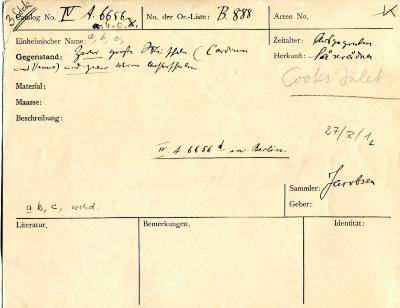 3 Stck
Catalog No. IV A. 6656 No. der Or.-Liste: B. 888 Acten No.
a. b. c.
Einheimischer Name: a, b, c, Zeitalter: Ausgegraben
Gegenstand: Zwei große (Cardium Herkunft:
und Venus) und zwei kleine
Cooks Inlet
Material:
Maasse:
Beschreibung:
IV A 6656 d in Berlin.
Sammler: Jacobsen
Geber:
a b, c, vorhd.
Literatur. Bemerkungen. Identität: